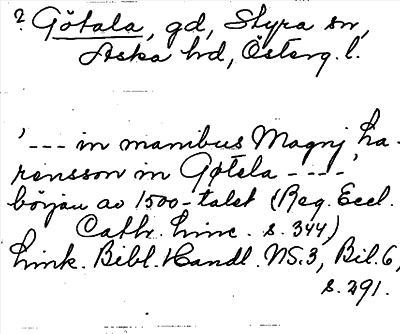 ? Götala, gd, Styra sn,
Aska hd, Österg. l.
'--- in manibus Magnj ha-
rensson in Gøtela ----'
början av 1500-talet (Reg. Eccl.
Cath. Linc. s. 344)
Link. Bibl. Handl. NS.3, Bil. 6,
s. 291.